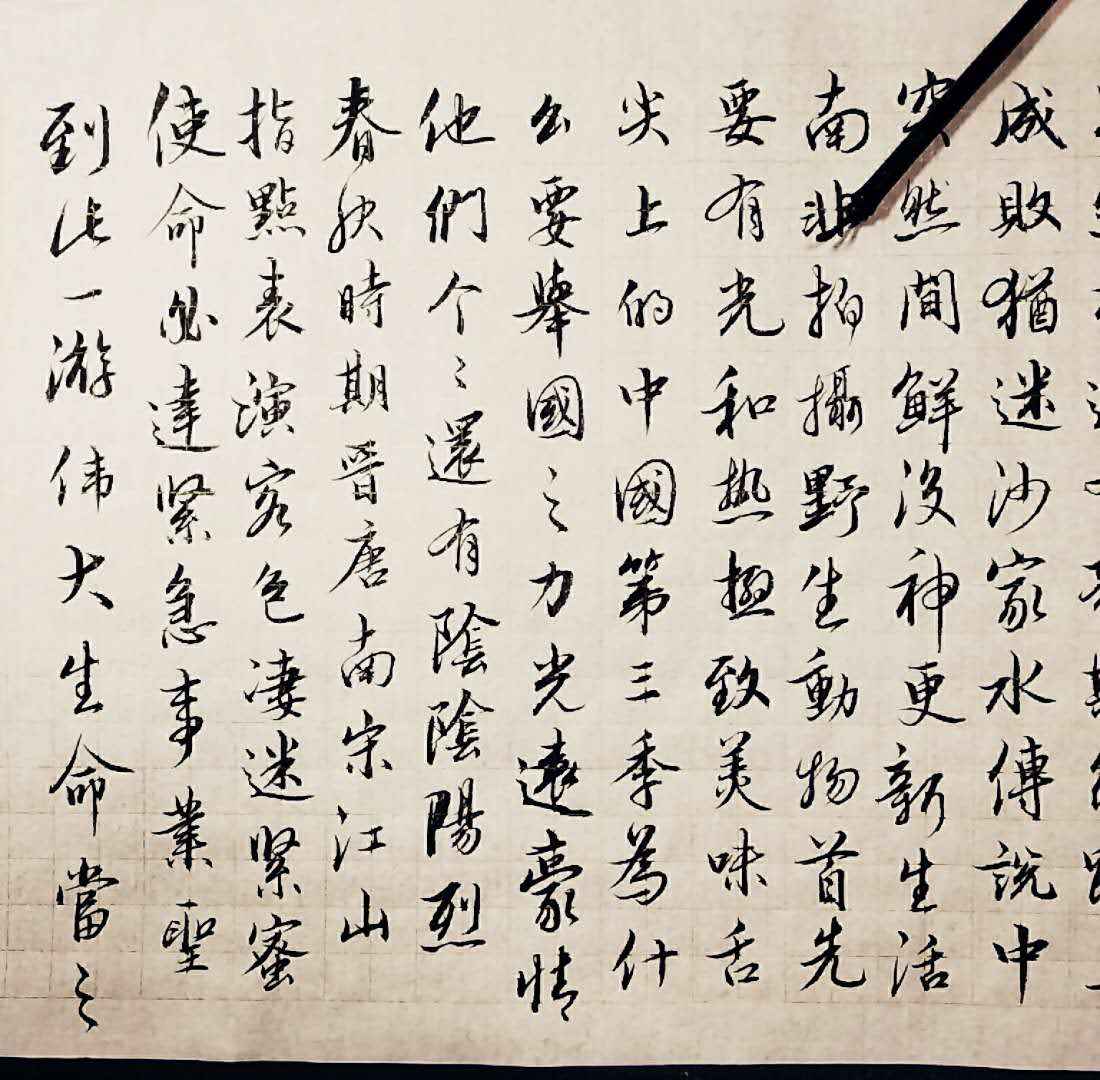 成敗猶迷沙家水傳說中
突然間鮮沒神更新生活
南非拍攝野生動物首先
要有光和热極致美味舌
尖上的中國第三季為什
么要舉國之力光遠豪情
他們个々還有陰陰陽烈
春秋時期晉唐南宗江山
指點表演客色凄迷緊蜜
使命必達緊急事業聖
到此一游伟大生命當之